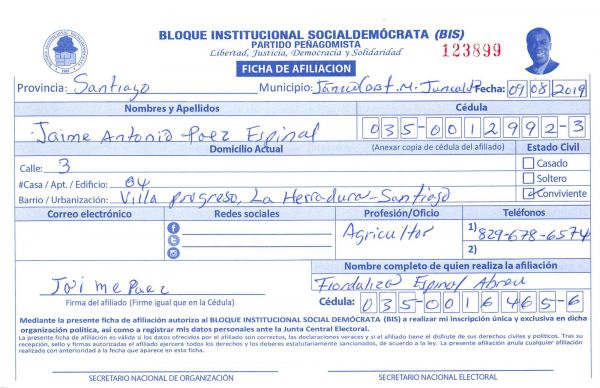 BLOQUE INSTITUCIONAL SOCIALDEMÓCRATA (BIS)
PARTIDO PEÑAGOMISTA
Libertad, Justicia, Democracia y Solidaridad
123899
FICHA DE AFILIACION
Provincia: Santiago Municipio: Fecha: 09 08 2019
Nombres y Apellidos Cédula
Jaime Antonio Paez Espinal 035-0012992-3
Domicilio Actual (Anexar copia de cédula del afiliado) Estado Civil
Calle: 3 Casado
#Casa / Apt. / Edificio: 04 Soltero
Barrio / Urbanización: Villa progreso, La Herradura-Santiago Conviviente
Correo electrónico Redes sociales Profesión/Oficio Teléfonos
Agricultor 1) 829-678-6574
2)
Nombre completo de quien realiza la afiliación
Jaime Paez Fiordaliza Espinal Abreu
Firma del afiliado (Firme igual que en la Cédula) Cédula: 035-0016465-6
Mediante la presente ficha de afiliación autorizo al BLOQUE INSTITUCIONAL SOCIAL DEMÓCRATA (BIS) a realizar mi inscripción única y exclusiva en dicha
organización política, así como a registrar mis datos personales ante la Junta Central Electoral.
La presente ficha de afiliación es válida si los datos ofrecidos por el afiliado son correctos, las declaraciones veraces y si el afiliado tiene el disfrute de sus derechos civiles y políticos. Tras su
recepción, sello y firmas autorizadas el afiliado ejercerá todos los derechos y los deberes estatutariamente sancionados, de acuerdo a la ley. La presente afiliación anula cualquier afiliación
realizada con anterioridad a la fecha que aparece en esta ficha.
SECRETARIO NACIONAL DE ORGANIZACIÓN SECRETARIO NACIONAL ELECTORAL